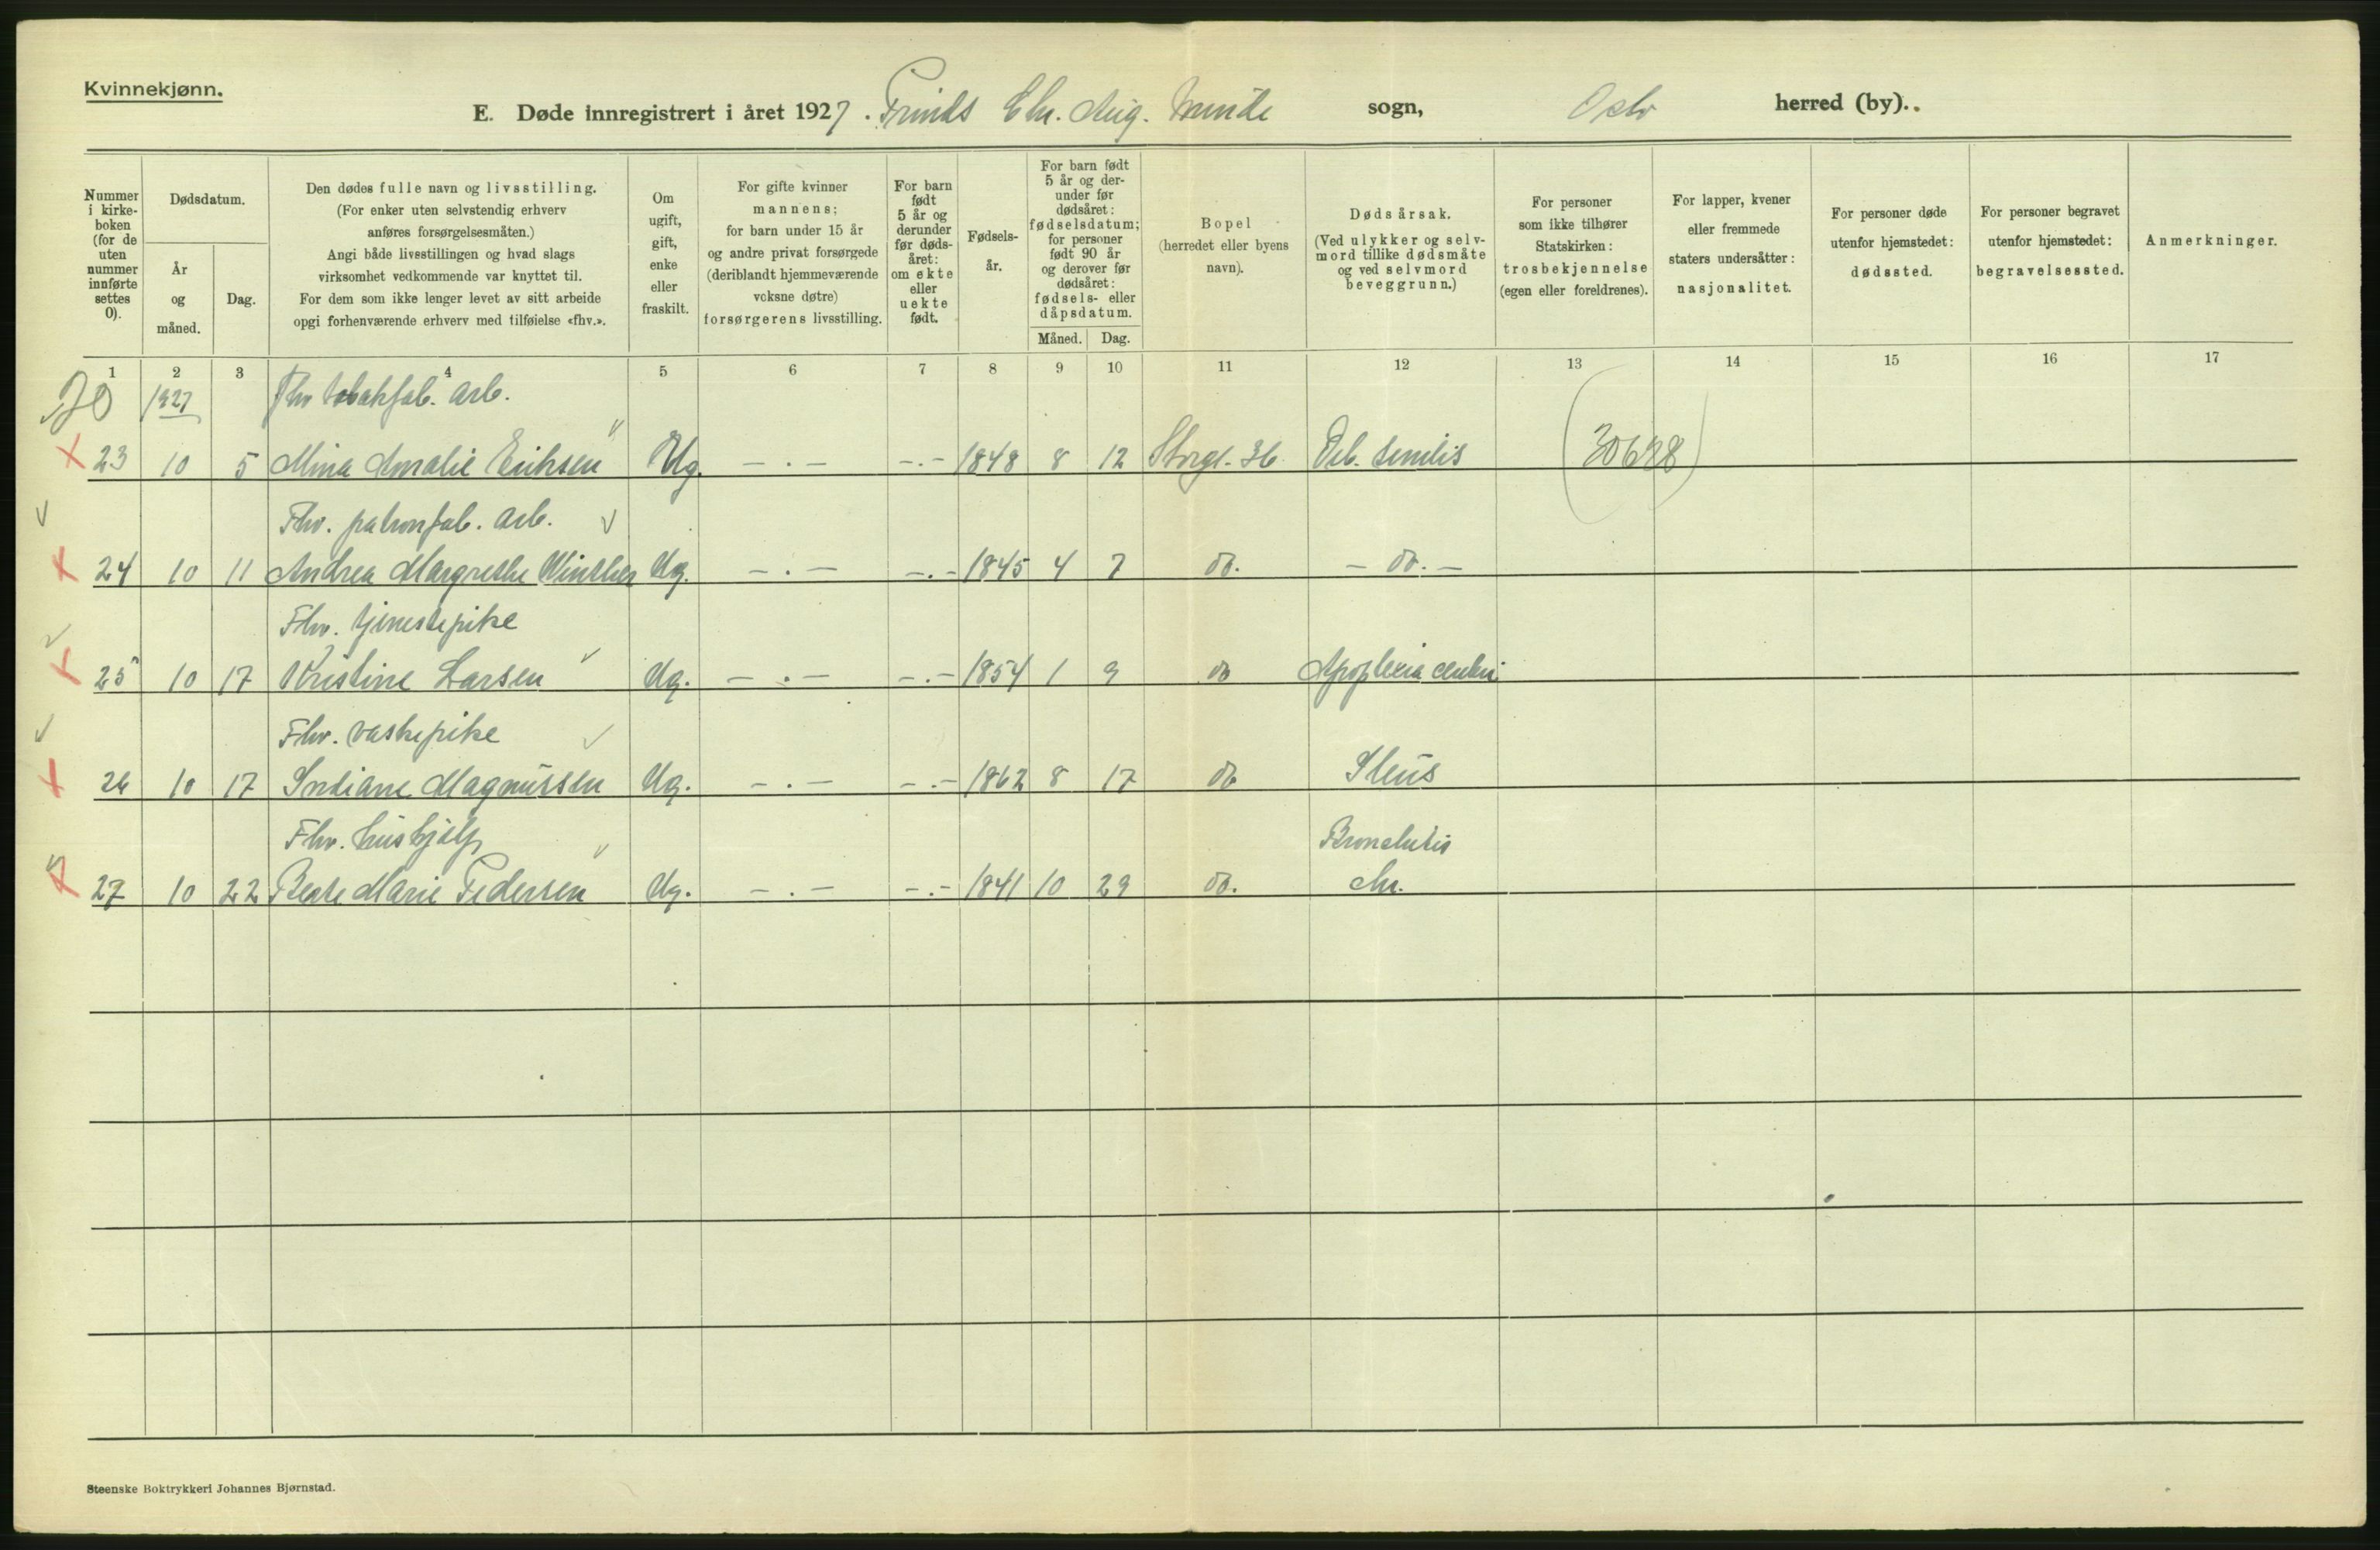 Kvinnekjønn.
E. Døde innregistrert i året 1927. Prinds Chr. Aug. Minde sogn, Oslo herred (by).
Nummer i kirke-boken (for de uten nummer innførte settes 0).
Dødsdatum.
År og måned.
Dag.
Den dødes fulle navn og livsstilling.
(For enker uten selvstendig erhverv
anføres forsørgelsesmåten.)
Angi både livsstillingen og hvad slags
virksomhet vedkommende var knyttet til.
For dem som ikke lenger levet av sitt arbeide
opgi forhenværende erhverv med tilføielse «fhv.».
Om ugift, gift, enke eller fraskilt.
For gifte kvinner
mannens;
for barn under 15 år
og andre privat forsørgede
(deriblandt hjemmeværende
voksne døtre)
forsørgerens livsstilling.
For barn født 5 år og derunder før døds-året: om ekte eller uekte født.
Fødsels-år.
For barn født 5 år og der-under før dødsåret: fødselsdatum; for personer født 90 år og derover før dødsåret: fødsels- eller dåpsdatum.
Måned. Dag.
Bopel
(herredet eller byens
navn).
Dødsårsak.
(Ved ulykker og selv-
mord tillike dødsmåte
og ved selvmord
beveggrunn.)
For personer
som ikke tilhører
Statskirken:
trosbekjennelse
(egen eller foreldrenes).
For lapper, kvener
eller fremmede
staters undersåtter:
nasjonalitet.
For personer døde
utenfor hjemstedet:
dødssted.
For personer begravet
utenfor hjemstedet:
begravelsessted.
Anmerkninger.
1 2 3 4 5 6 7 8 9 10 11 12 13 14 15 16 17
20 1927 Fhv tobakfab. arb.
23 10 5 Mina Amalie Eriksen Ug. — . — —.— 1848 8 12 Storgt. 36 Deb. senilis (30688)
Fhv. patronfab. arb.
24 10 11 Andrea Margrethe Winther Ug. — . — —.— 1845 4 7 do. — do. —
Fhv. tjenestepike
25 10 17 Kristine Larsen Ug. — . — —.— 1854 1 9 do Apoplexia cerebri
Fhv. vaskepike
26 10 17 Indiane Magnussen Ug. — . — —.— 1862 8 17 do Ileus
Fhv. hushjelp Bronchitis
27 10 22 Beate Marie Pedersen Ug. — . — —.— 1841 10 29 do. chr.
Steenske Boktrykkeri Johannes Bjørnstad.